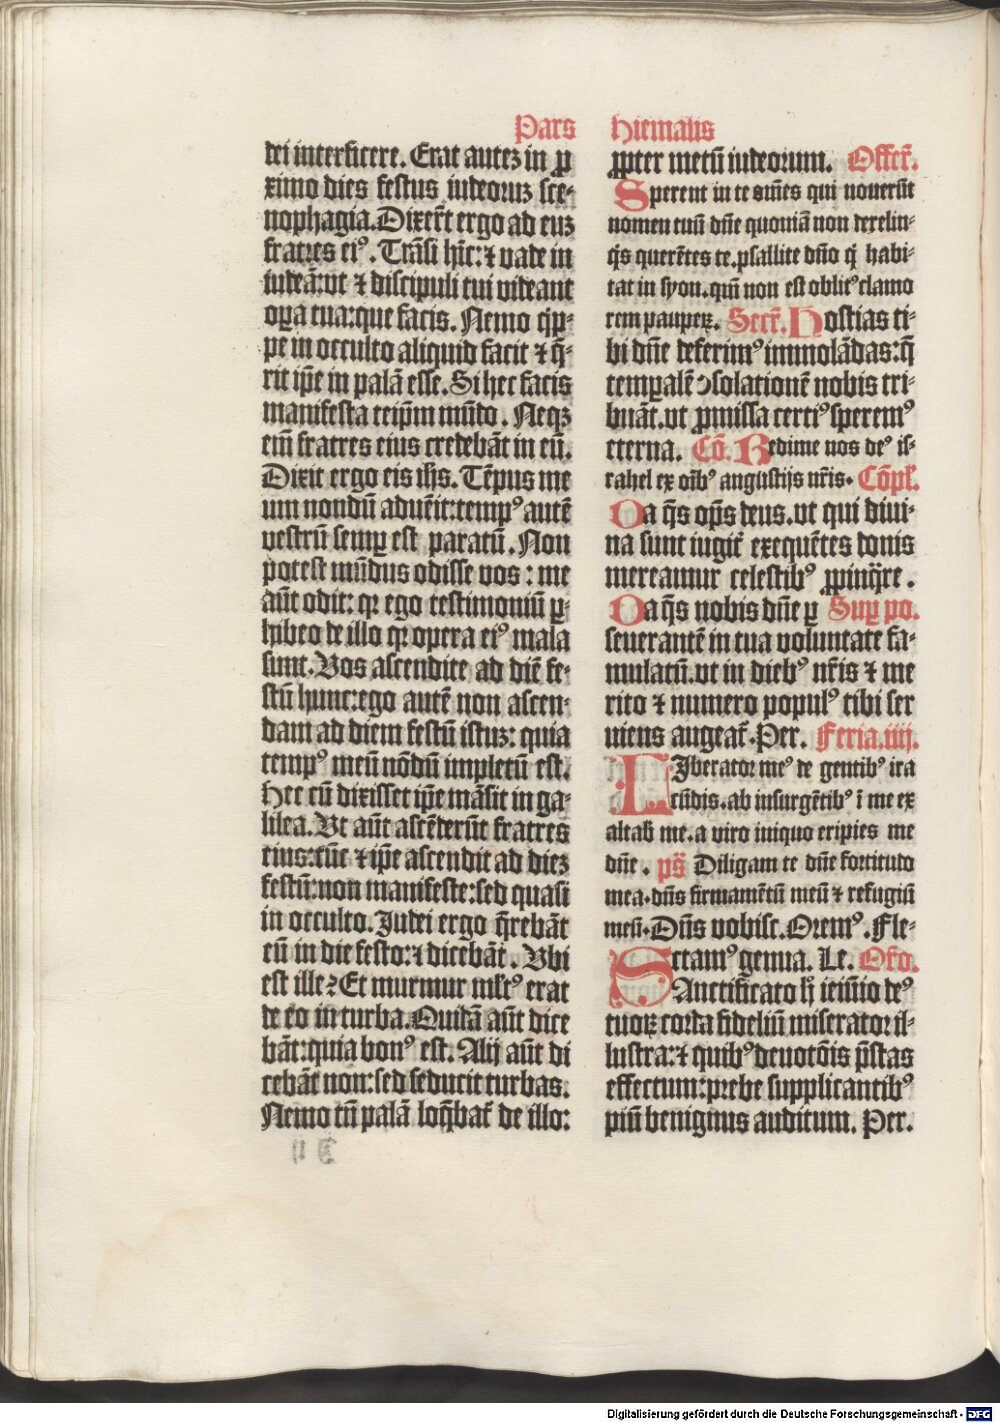 Pars
dei interficere. Erat autez in ꝓ
ximo dies festus iudeoruz sce⸗
nophagia. Dixer̄t ergo ad euz
fratres eiꝰ. Trāsi hīc: ⁊ vade in
iudeā: vt ⁊ discipuli tui videant
oꝑa tua: que facis. Nemo q̇p⸗
pe in occulto aliquid facit ⁊ q̄⸗
rit ip̄e in palā esse. Si hec facis
manifesta teip̄m mūdo. Neqꝫ
em̄ fratres eius credebāt in eū.
Dixit ergo eis ih̄s. Tēpus me
um nondū aduēit: tempꝰ autē
vestrū semꝑ est paratū. Non
potest mūdus odisse vos: me
aūt odit: qꝛ ego testimoniū ꝑ⸗
hibeo de illo qꝛ opera eiꝰ mala
sunt. Vos ascendite ad diē fe⸗
stū hunc: ego autē non ascen⸗
dam ad diem festū istuz: quia
tempꝰ meū nōdū impletū est.
Hec cū dixisset ip̄e māsit in ga⸗
lilea. Vt aūt ascēderūt fratres
eius: tūc ⁊ ip̄e ascendit ad diez
festū: non manifeste: sed quasi
in occulto. Judei ergo q̄rebāt
eū in die festo: ⁊ dicebāt. Vbi
est ille? Et murmur ml̄tꝰ erat
de eo in turba. Quidā aūt dice
bāt: quia bonꝰ est. Alij aūt di
cebāt non: sed seducit turbas.
Nemo tn̄ palā loq̄bat̄ de illo:
hiemalis
ꝓpter metū iudeorum. Offer̄.
Sperent in te om̄es qui nouerūt
nomen tuū dn̄e quoniā non derelin⸗
q̇s querētes te. psallite dn̄o q̇ habi⸗
tat in syon. qm̄ non est oblitꝰ clamo
rem pauperꝝ. Secr̄. Hostias ti⸗
bi dn̄e deferimꝰ immolādas: q̄
tempalē ↄsolationē nobis tri⸗
buāt. vt ꝓmissa certiꝰ speremꝰ
eterna. Cō. Redime nos deꝰ is⸗
rahel ex oībꝰ angustijs nr̄is. Cōpl̄.
Da q̄s op̄s deus. vt qui diui⸗
na sunt iugit̄ exequētes donis
mereamur celestibꝰ ꝓpinq̄re.
Da q̄s nobis dn̄e ꝑ Suꝑ po.
seuerantē in tua voluntate fa⸗
mulatū. vt in diebꝰ nr̄is ⁊ me
rito ⁊ numero populꝰ tibi ser
uiens augeat̄. Per. Feria. iiij.
LJberator meꝰ de gentibꝰ ira
cūdis. ab insurgētibꝰ ī me ex
altab̄ me. a viro iniquo eripies me
dn̄e. ps̄ Diligam te dn̄e fortitudo
mea. dn̄s firmamētū meū ⁊ refugiū
meū. Dn̄s vobisc. Oremꝰ. Fle⸗
ctamꝰ genua. Le. Or̄o.
SAnctificato h̄ ieiūio deꝰ
tuoꝝ corda fideliū miserator il⸗
lustra: ⁊ quibꝰ deuotōis p̄stas
effectum: prebe supplicantibꝰ
piū benignus auditum. Per.
Digitalisierung gefördert durch die Deutsche Forschungsgemeinschaft - DFG